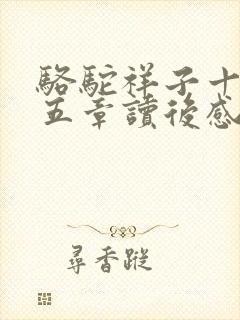 駱駝祥子十
五章讀後感
尋香蹤